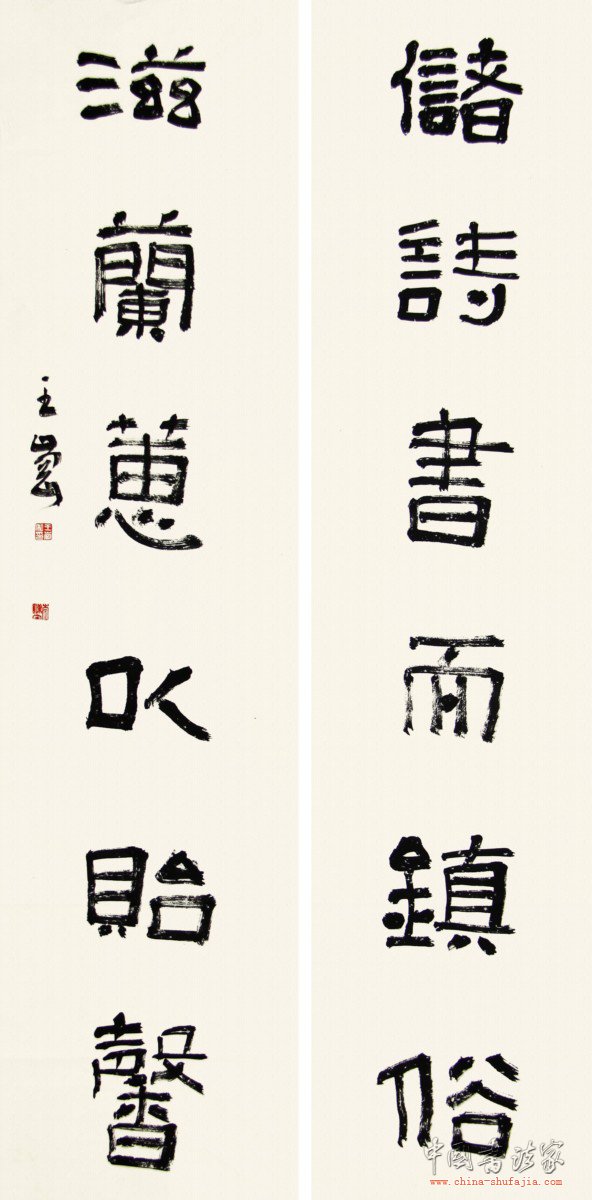 儲詩書而鎮俗
滋蘭蕙以貽馨
王
中国书法家
www.china-shufajia.com